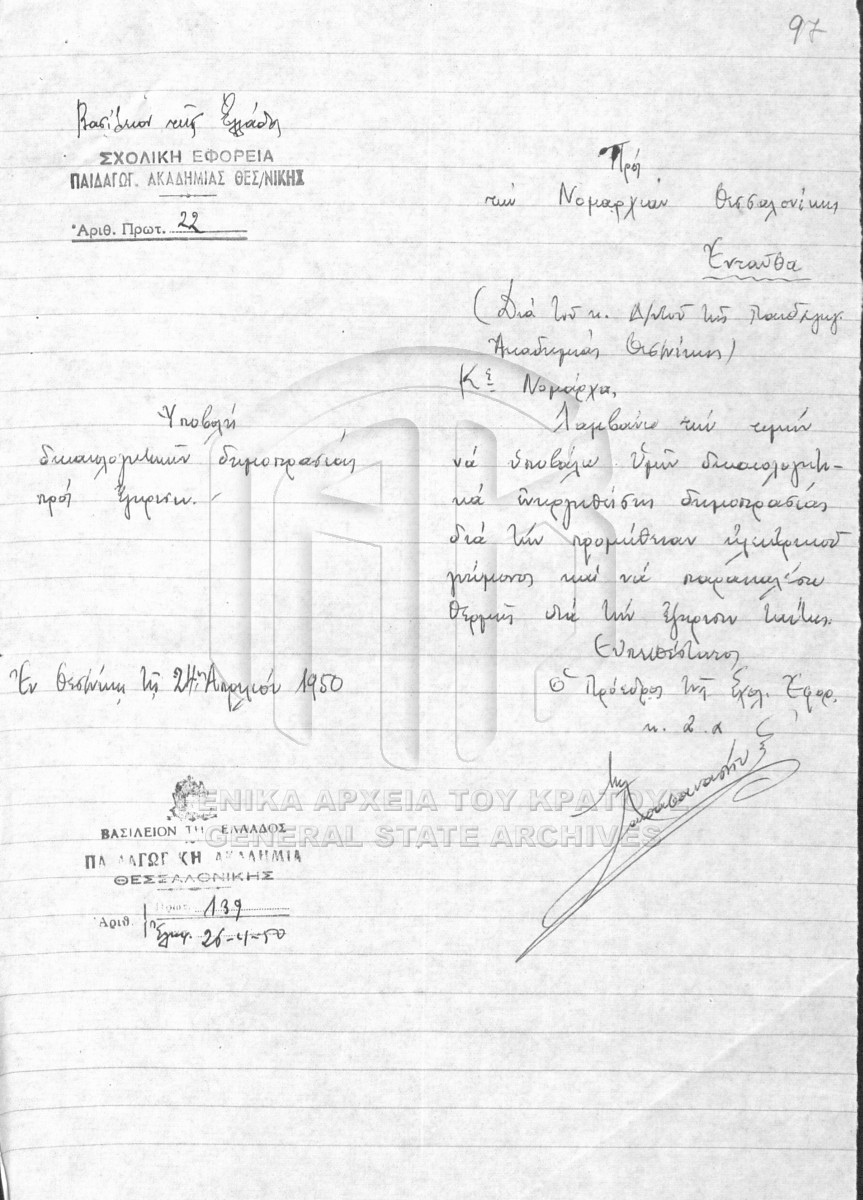 97
Βασίλειον της Ελλάδος
ΣΧΟΛΙΚΗ ΕΦΟΡΕΙΑ
ΠΑΙΔΑΓΩΓ. ΑΚΑΔΗΜΙΑΣ ΘΕΣ/ΝΙΚΗΣ
Ἀριθ. Πρωτ. 22
Πρός
τήν Νομαρχίαν Θεσσαλονίκης
Ἐνταῦθα
(Διά τοῦ κ. Δ/ντοῦ τῆς Παιδαγωγ.
Ἀκαδημίας Θεσ/νίκης)
Κε Νομάρχα,
Ὑποβολή
δικαιολογητικῶν δημοπρασίας
πρός ἔγκρισιν.
Λαμβάνω τήν τιμήν
νά ὑποβάλω Ὑμῖν δικαιολογητι-
κά ἐνεργηθείσης δημοπρασίας
διά τήν προμήθειαν ἠλεκτρικοῦ
γνώμονος καί νά παρακαλέσω
θερμῶς διά τήν ἔγκρισιν ταύτης.
Εὐπειθέστατος
Ὁ Πρόεδρος τῆς Σχολ. Ἐφορ.
Ἐν Θεσ/νίκῃ τῇ 24ῃ Ἀπριλίου 1950
ΓΕΝΙΚΑ ΑΡΧΕΙΑ ΤΟΥ ΚΡΑΤΟΥΣ
GENERAL STATE ARCHIVES
ΒΑΣΙΛΕΙΟΝ ΤΗΣ ΕΛΛΑΔΟΣ
ΠΑΙΔΑΓΩΓΙΚΗ ΑΚΑΔΗΜΙΑ
ΘΕΣΣΑΛΟΝΙΚΗΣ
Ἀριθ. Πρωτ. 139
26-4-50